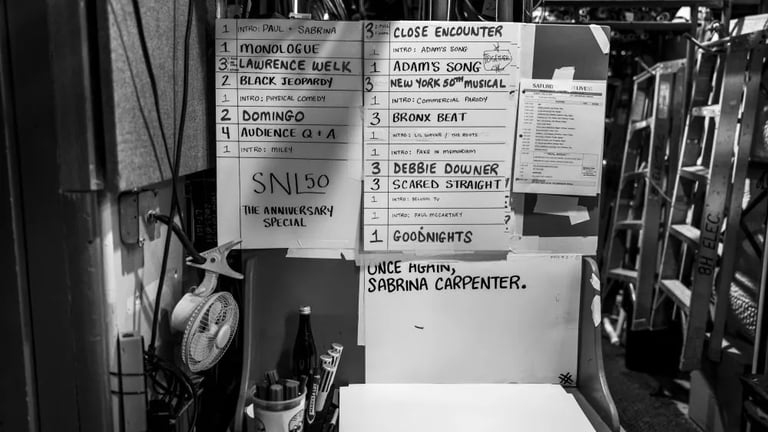 1 INTRO: PAUL + SABRINA
1 MONOLOGUE
3 LAWRENCE WELK
2 BLACK JEOPARDY
1 INTRO: PHYSICAL COMEDY
2 DOMINGO
4 AUDIENCE Q + A
1 INTRO: MILEY
SNL50
THE ANNIVERSARY
SPECIAL
3 CLOSE ENCOUNTER
1 INTRO: ADAM'S SONG
1 ADAM'S SONG
3 NEW YORK 50TH MUSICAL
1 INTRO: COMMERCIAL PARODY
3 BRONX BEAT
1 INTRO: LIL WAYNE / THE ROOTS
1 INTRO: FAKE IN MEMORIAM
3 DEBBIE DOWNER
3 SCARED STRAIGHT
1 INTRO:
1 INTRO: PAUL MCCARTNEY
1 GOODNIGHTS
ONCE AGAIN,
SABRINA CARPENTER.
BH ELEC